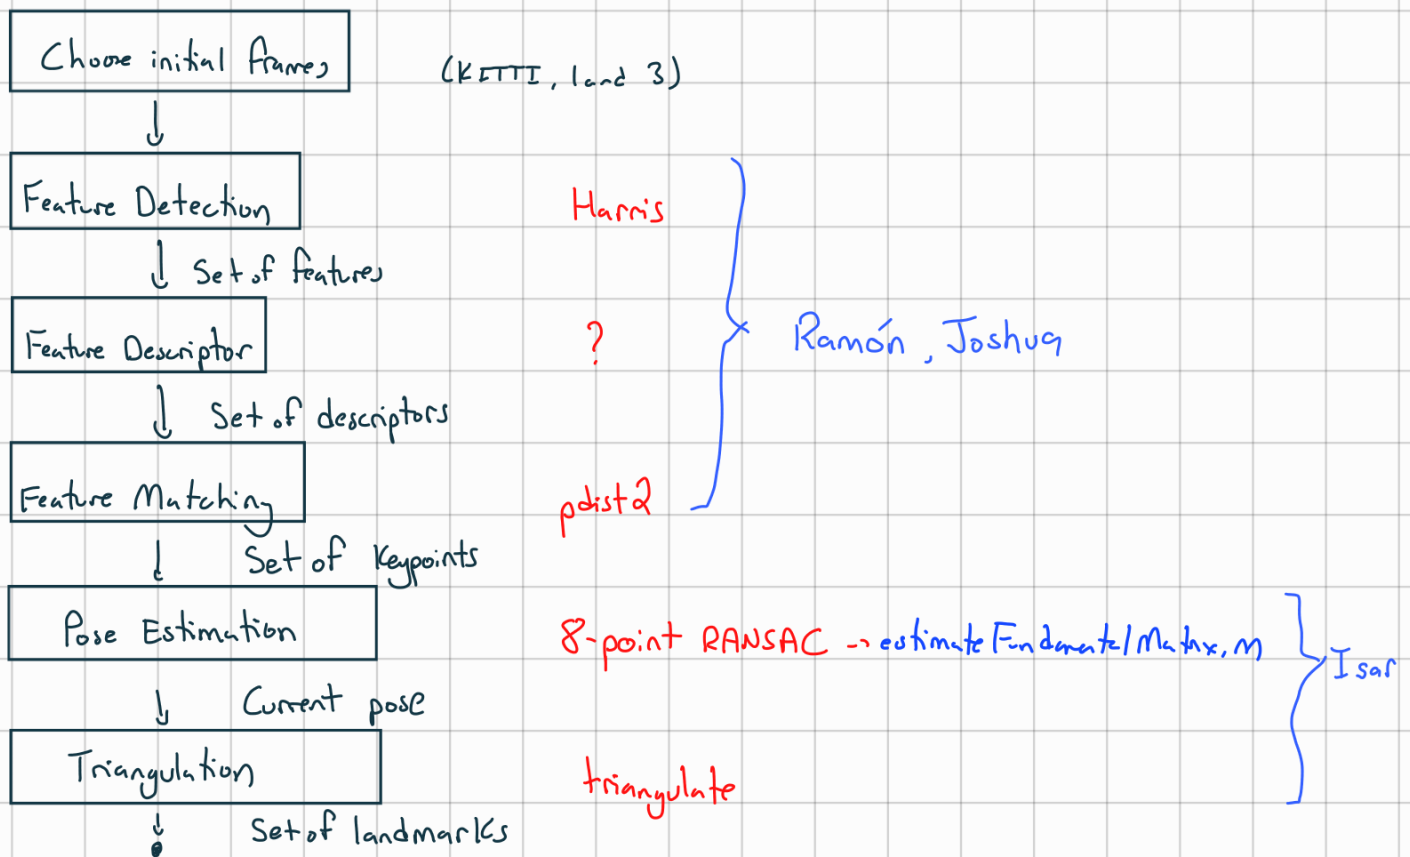 Choose initial frames
(KITTI, 1 and 3)
Feature Detection
Harris
Set of features
Feature Descriptor
?
Ramón, Joshua
Set of descriptors
Feature Matching
pdist2
Set of Keypoints
Pose Estimation
8-point RANSAC → estimateFundamentalMatrix.m
Isar
Current pose
Triangulation
triangulate
Set of landmarks